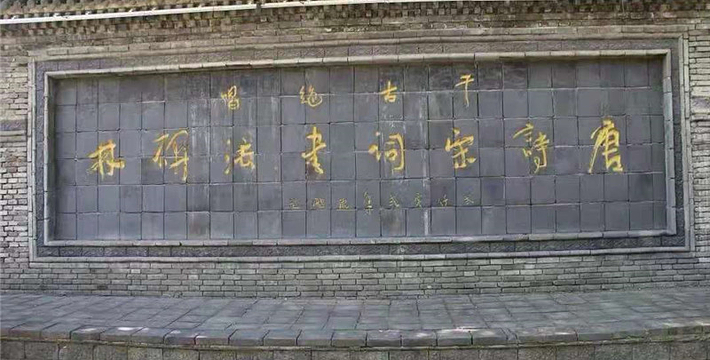 千古绝唱
唐詩宋词书法碑林